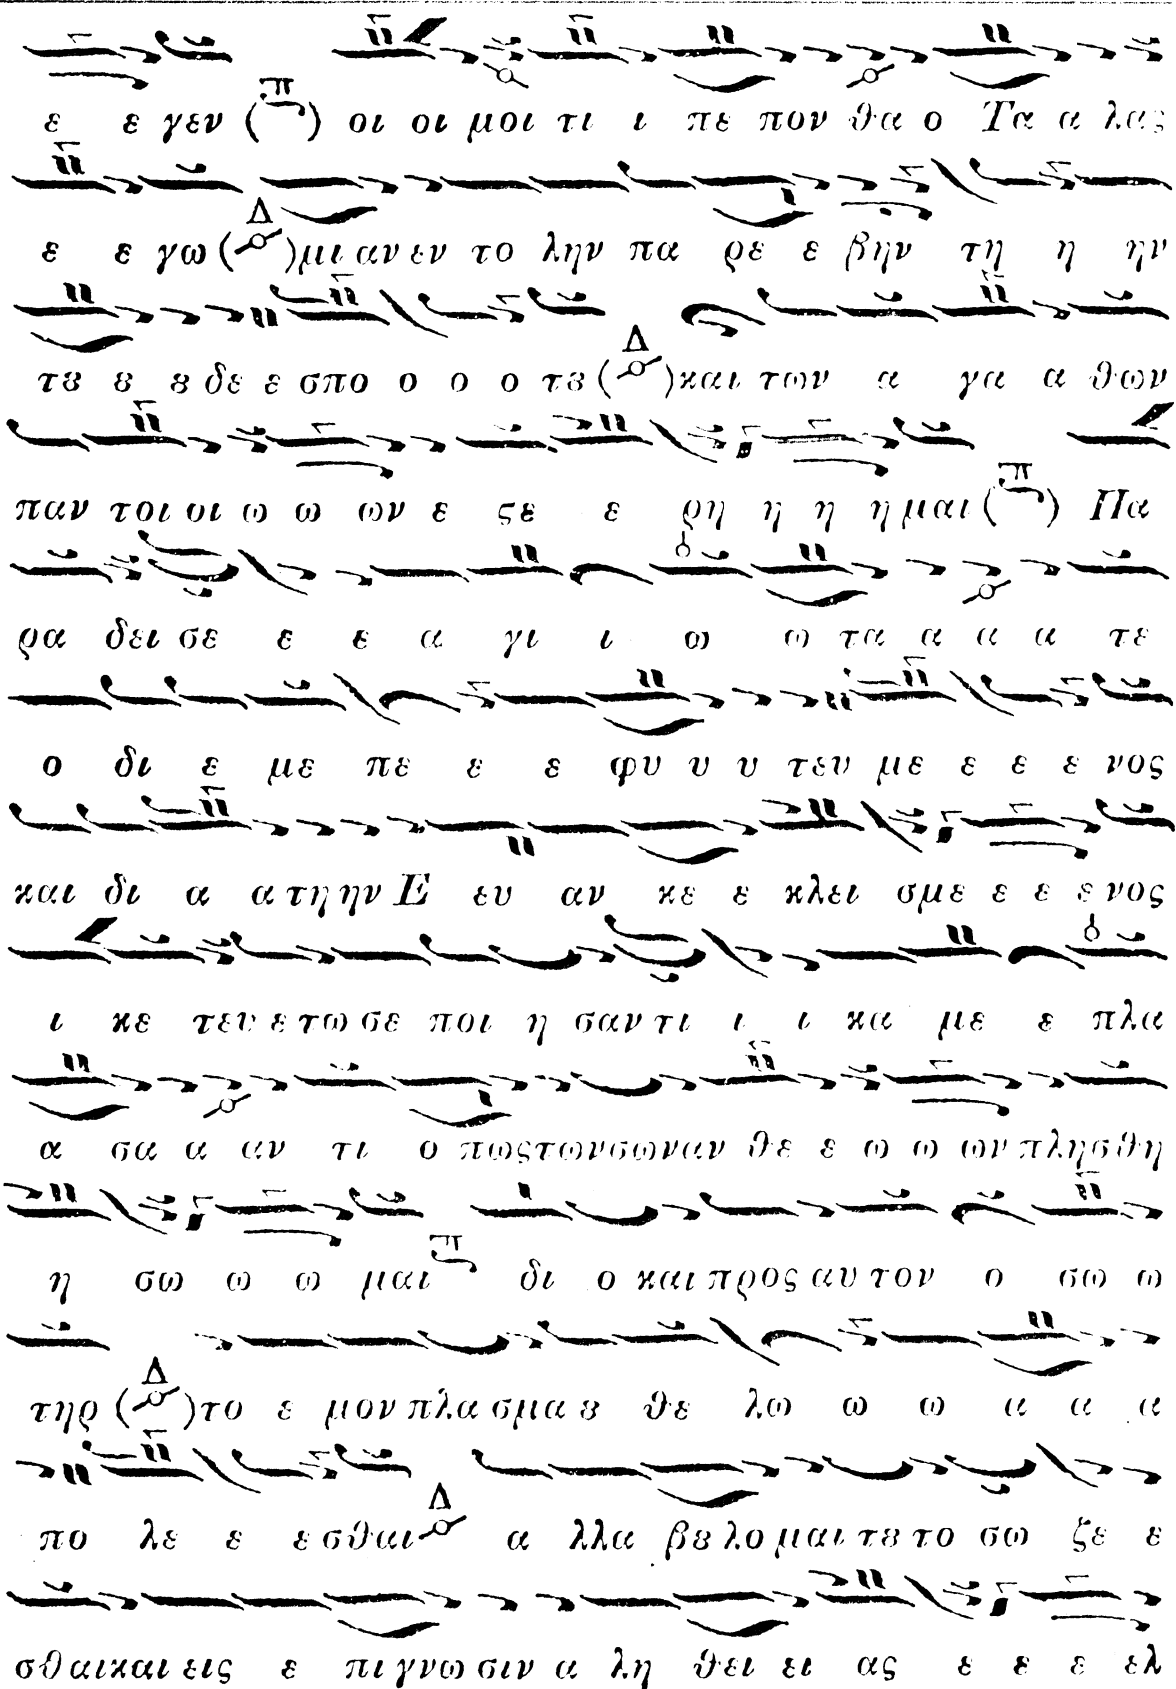 ε ε γεν (π) οι οι μοι τι ι πε πον θα ο Τα α λας
ε ε γω (Δ) μι αν εν το λην πα ρε ε βην τη η ην
τȣ ȣ ȣ δε ε σπο ο ο ο τȣ (Δ) και των α γα α θων
παν τοι οι ω ω ων ε ϛε ε ρη η η η μαι (π) Πα
ρα δει σε ε ε α γι ι ω ω τα α α α τε
ο δι ε με πε ε ε φυ υ υ τευ με ε ε ε νος
και δι α α τη ην Ε ευ αν κε ε κλει σμε ε ε ε νος
ι κε τευ ε τω σε ποι η σαν τι ι ι κα με ε πλα
α σα α αν τι ο πως των σων αν θε ε ω ω ων πλησθη
η σω ω ω μαι π δι ο και προς αυ τον ο σω ω
τηρ (Δ) το ε μον πλα σμα ȣ θε λω ω ω α α α
πο λε ε ε σθαι Δ α λλα βȣ λο μαι τȣ το σω ζε ε
σθαι και εις ε πι γνω σιν α λη θει ει ας ε ε ε ελ